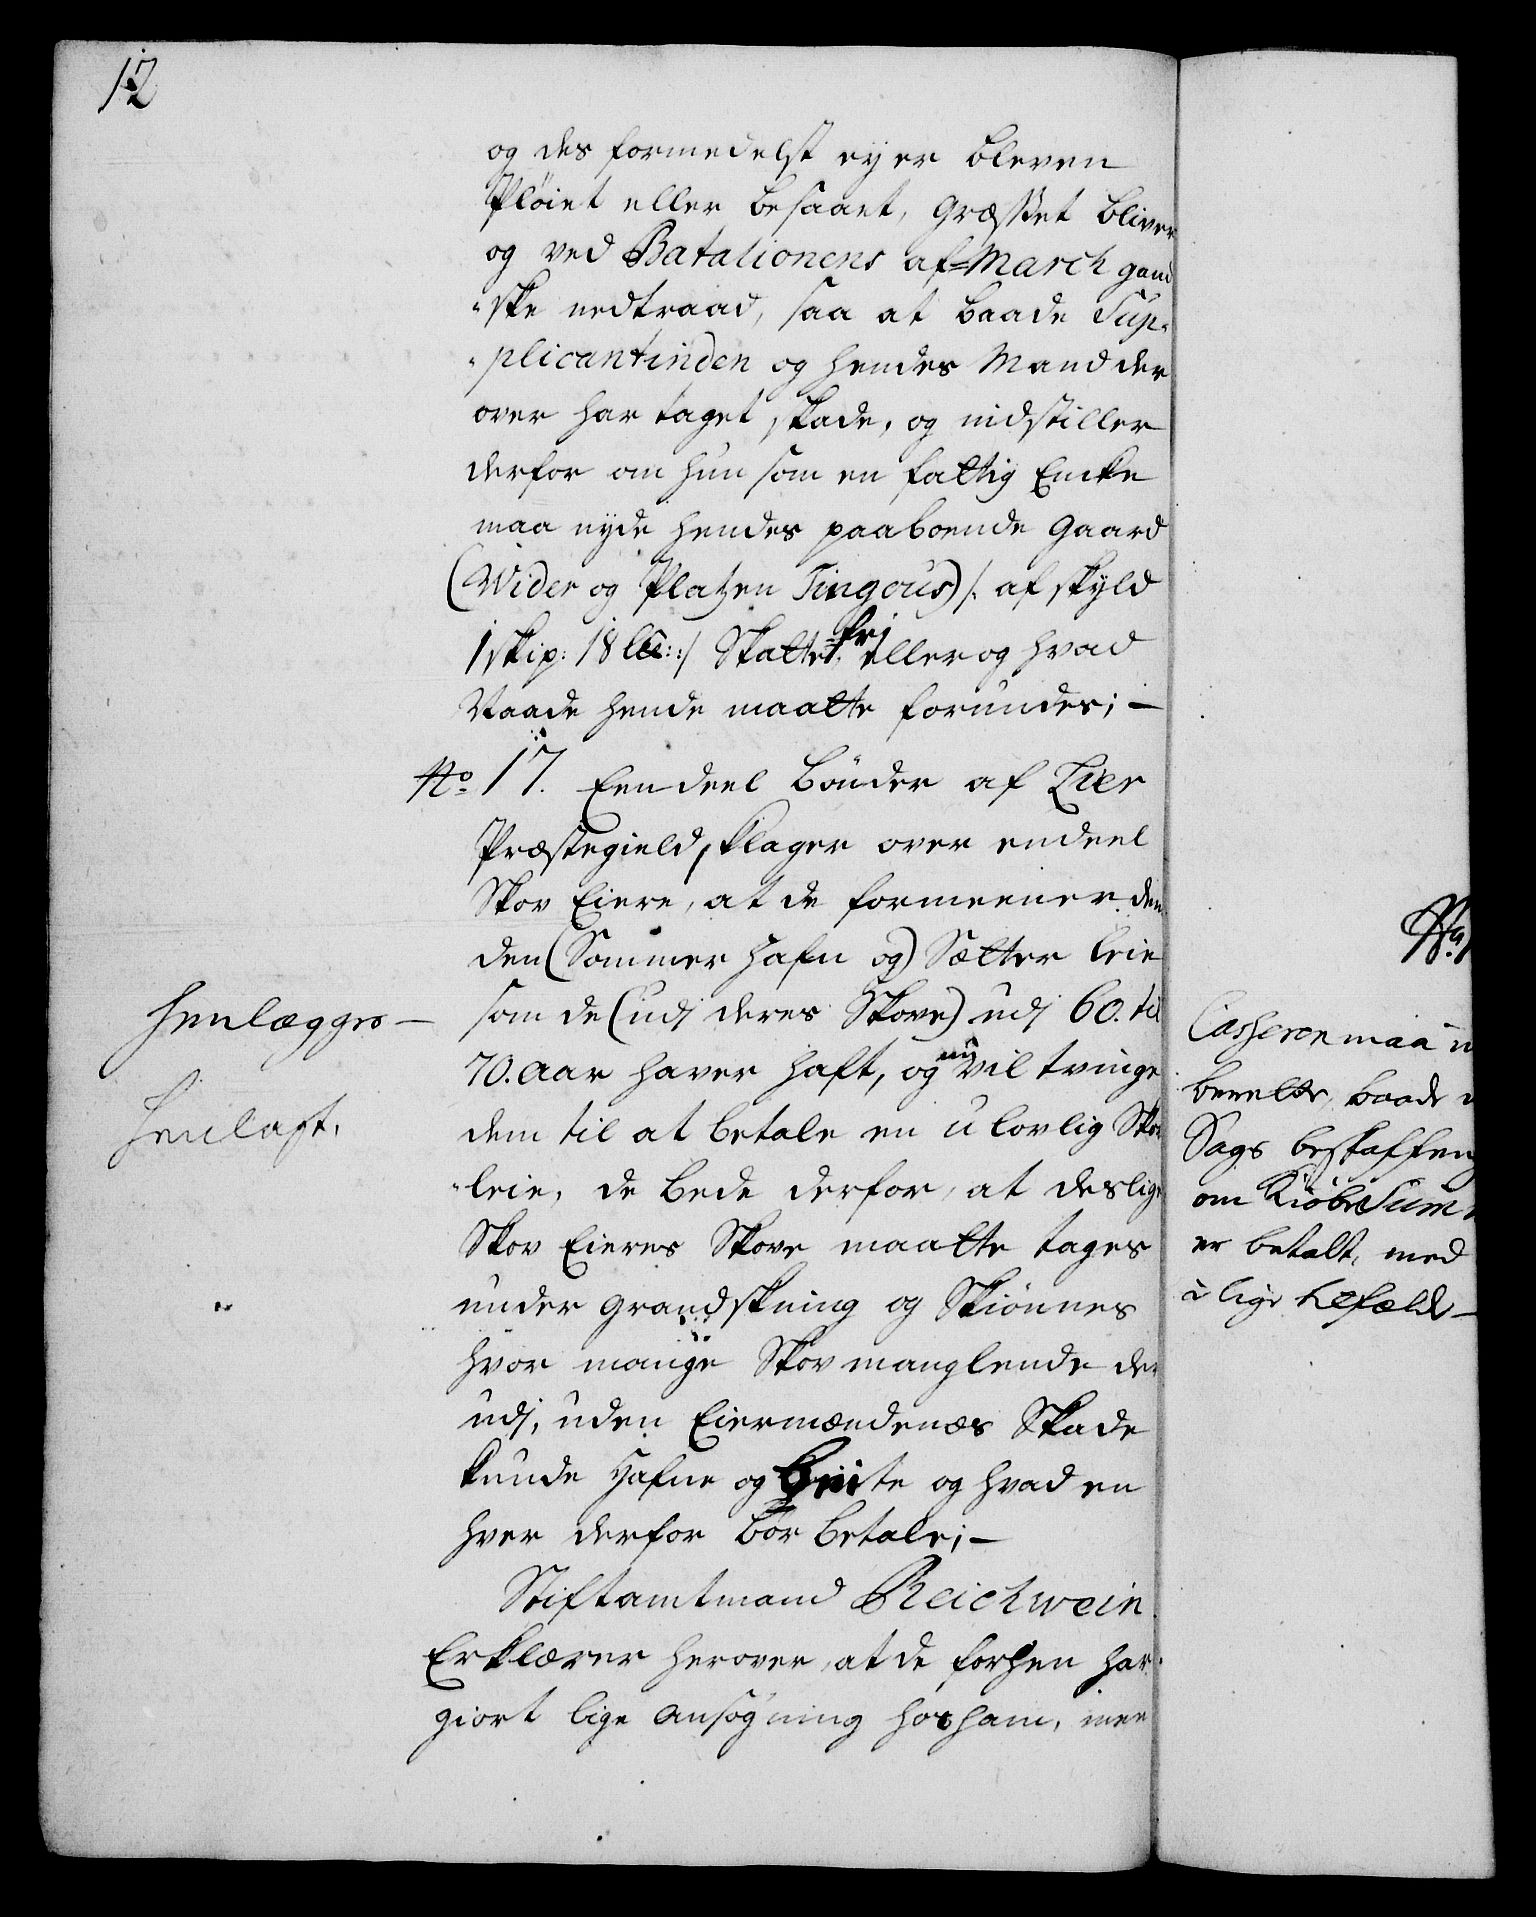 12
og des formedelst ej er bleven
Pløiet eller besaaet, Græsset bliver
og ved Batalionens af-March gand
-ske nedtraad, saa at baade Sup-
-plicantinden og hendes Mand der
over har taget skade, og indstiller
derfor om hun som en fattig Encke
maa nyde hendes paaboende Gaard
(Wider og Platzen Tingous) /: af skyld
1 skip: 18 :/ Skatte fri eller og hvad
Naade hende maatte forundes; —
No 17. Een deel Bønder af Lier
Præstegield, klager over endeel
Skov Eiere, at de formeener dem
den (Sommer Hafn og) Sætter leie
som de (udj deres Skove) udj 60. til
70. aar haver haft, og nu vil tvinge
dem til at betale en ulovlig Skov
-leie, de bede derfor, at deslige
Skov Eieres Skove maatte tages
under Grandskning og Skiønnes
hvor mange Skov manglende der
udj, uden Eiermændenes Skade
kunde Hafne og beite og hvad en
hver derfor bør betale; —
Stiftamtmand Reichwein
Erklærer herover, at de forhen har
giort lige Ansøgning hos ham, men
Henlægges —
Henlagt.
Casheron maa
berette, baade
Sags beskaffen
om Kiøbe Sum
er betalt, med